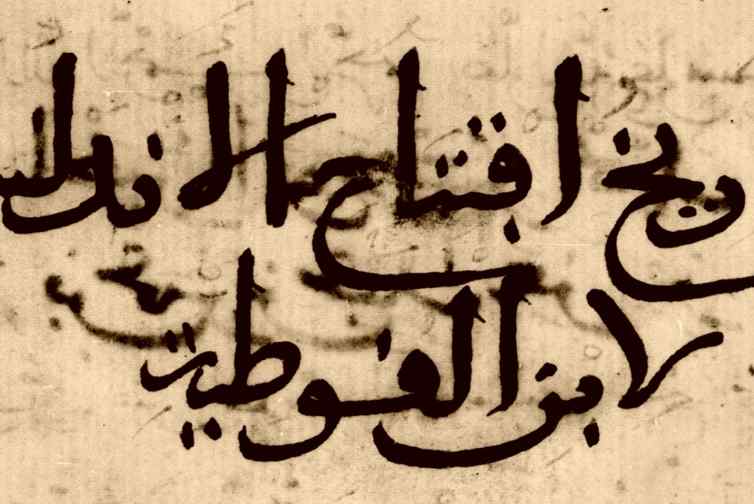 ريخ افتتاح الاندلس
لابن القوطية